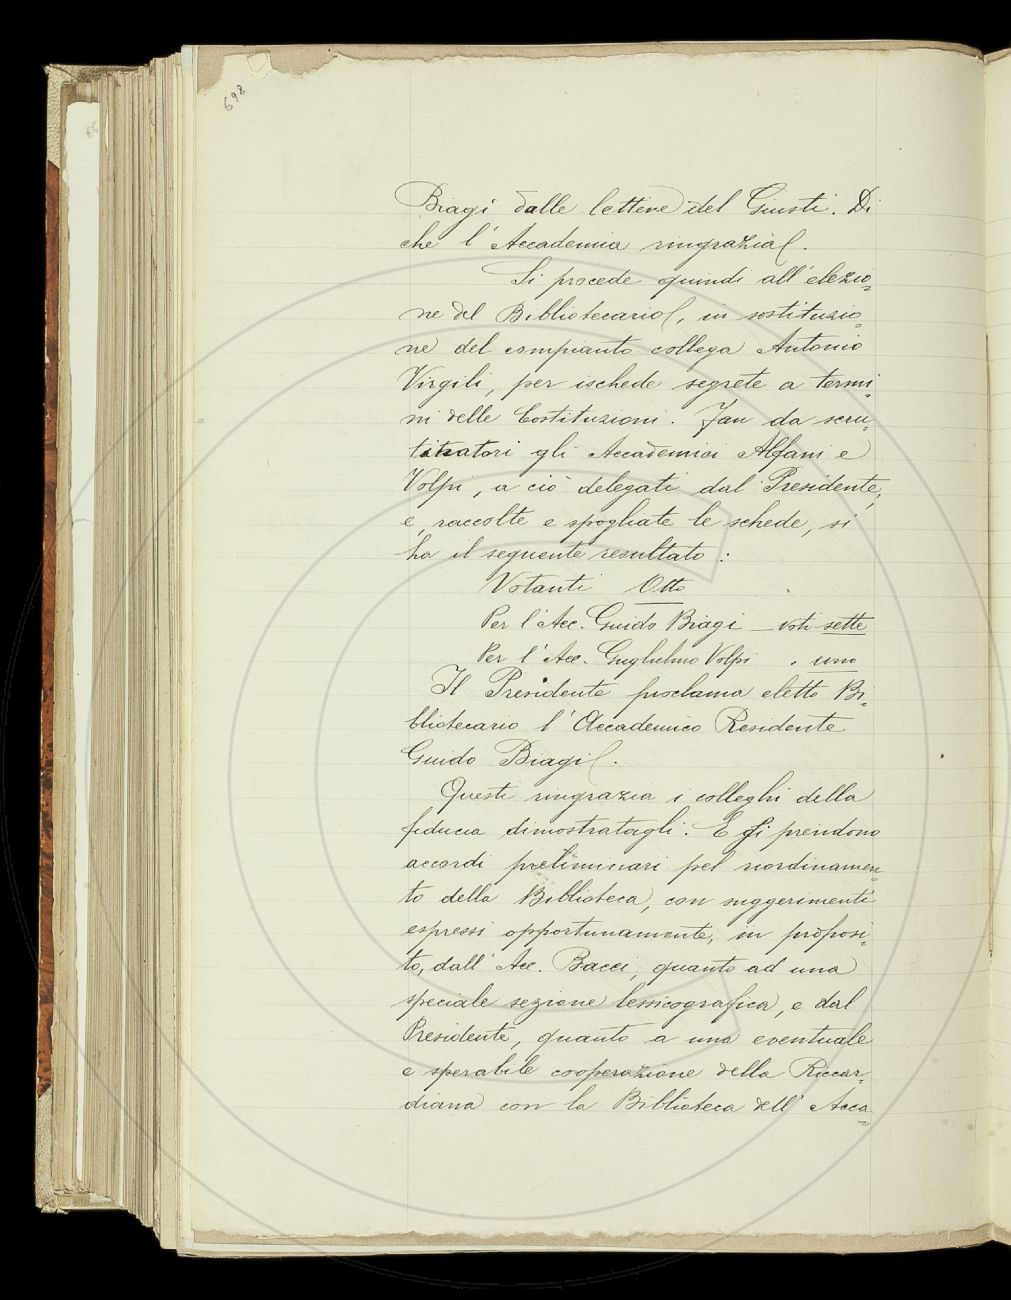 698
Biagi dalle lettere del Giusti. Di
che l'Accademia ringrazia.
Si procede quindi all'elezio=
ne del Bibliotecario, in sostituzio=
ne del compianto collega Antonio
Virgili, per ischede segrete a termi=
ni delle Costituzioni. Fan da scru=
titatori gli Accademici Alfani e
Volpi, a ciò delegati dal Presidente;
e, raccolte e spogliate le schede, si
ha il seguente resultato:
Votanti Otto
Per l'Acc. Guido Biagi – voti sette
Per l'Acc. Guglielmo Volpi " uno
Il Presidente proclama eletto Bi=
bliotecario l'Accademico Residente
Guido Biagi.
Questi ringrazia i colleghi della
fiducia dimostratagli. E si prendono
accordi preliminari pel riordinamen=
to della Biblioteca, con suggerimenti
espressi opportunamente, in proposi=
to, dall'Acc. Bacci, quanto ad una
speciale sezione lessicografica, e dal
Presidente, quanto a una eventuale
e sperabile cooperazione della Riccar=
diana con la Biblioteca dell'Acca=